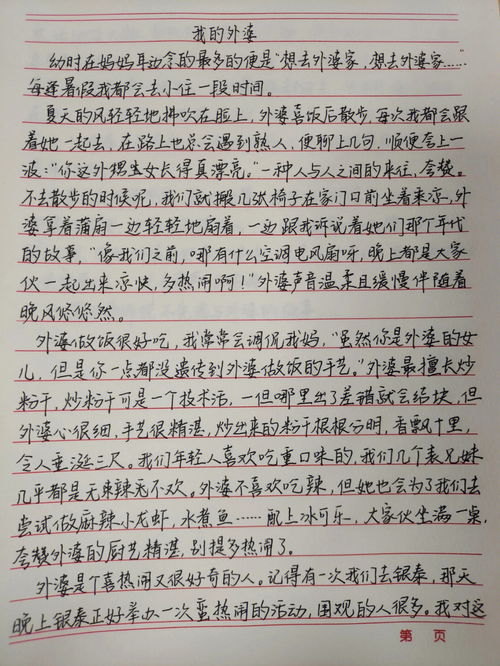 我的外婆
幼时在妈妈耳边念的最多的便是“想去外婆家，想去外婆家……”
每逢暑假我都会去小住一段时间。
夏天的风轻轻地拂吹在脸上，外婆喜饭后散步，每次我都会跟
着她一起去，在路上也总会遇到熟人，便聊上几句，顺便夸上一
波：“你这外甥生女长得真漂亮。”一种人与人之间的来往，夸赞。
不去散步的时候呢，我们就搬几张椅子在家门口前坐着来凉，外
婆拿着蒲扇一边轻轻地扇着，一边跟我诉说着她们那个年代
的故事，“像我们之前，哪有什么空调电风扇呀，晚上都是大家
伙一起出来凉快，多热闹啊！”外婆声音温柔且缓慢伴随着
晚风悠悠然。
外婆做饭很好吃，我常常会调侃我妈，“虽然你是外婆的女
儿，但是你一点都没遗传到外婆做饭的手艺。”外婆最擅长炒
粉干，炒粉干可是一个技术活，一但哪里出了差错就会结块，但
外婆心很细，手艺很精湛，炒出来的粉干根根分明，香飘十里，
令人垂涎三尺。我们年轻人喜欢吃重口味的，我们几个表兄妹
几乎都是无来辣无不欢。外婆不喜欢吃辣，但她也会为了我们去
尝试做麻辣小龙虾，水煮鱼……配上冰可乐，大家伙坐满一桌，
夸赞外婆的厨艺精湛，别提多热闹了。
外婆是个喜热闹又很好奇的人。记得有一次我们去银泰，那天
晚上银泰正好举办一次蛮热闹的活动，围观的人很多。我对这
第 页